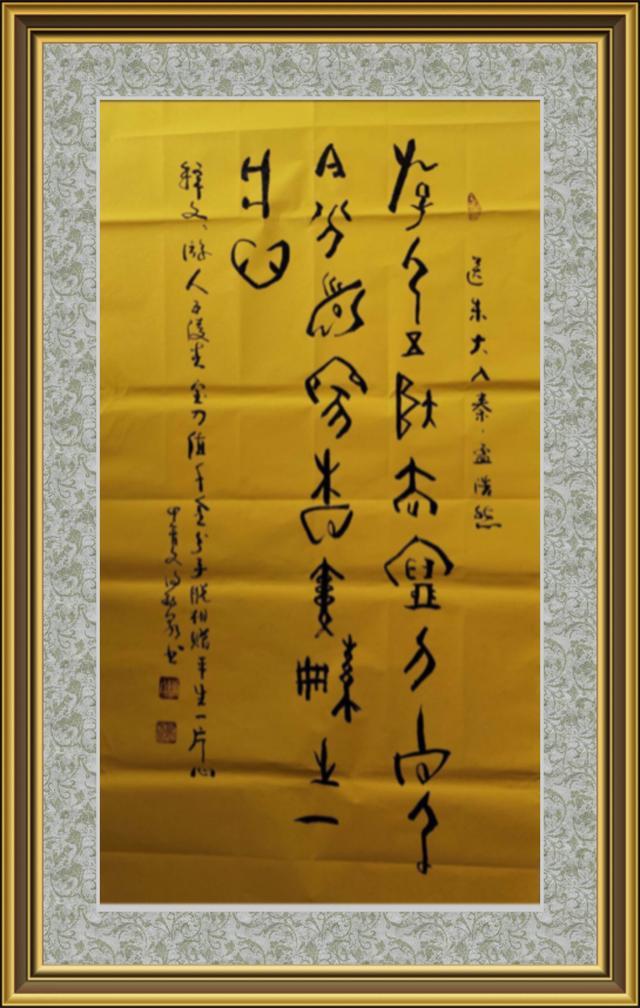 送朱大入秦·孟浩然
游人五陵去宝刀值千
金分手脱相赠平生一
片心
释文、游人五陵去宝刀值千金分手脱相赠平生一片心